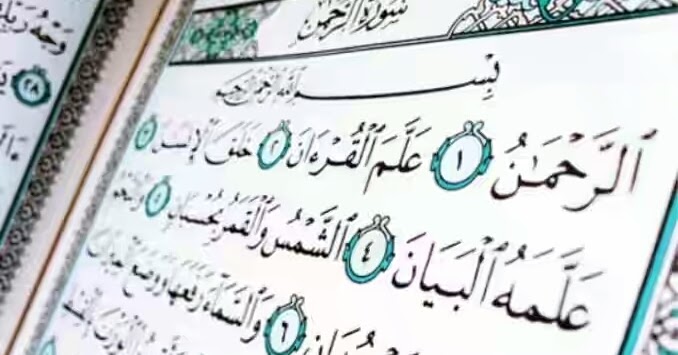 سُورَةُ الرَّحْمَٰن
بِسْمِ ٱللَّهِ ٱلرَّحْمَٰنِ ٱلرَّحِيمِ
ٱلرَّحْمَٰنُ ١ عَلَّمَ ٱلْقُرْءَانَ ٢ خَلَقَ ٱلْإِنسَٰنَ ٣
عَلَّمَهُ ٱلْبَيَانَ ٤ ٱلشَّمْسُ وَٱلْقَمَرُ بِحُسْبَانٍ ٥ وَٱلنَّجْمُ
٦ وَٱلسَّمَآءَ رَفَعَهَا وَوَضَعَ
وَجْهُ رَبِّكَ
٢٨